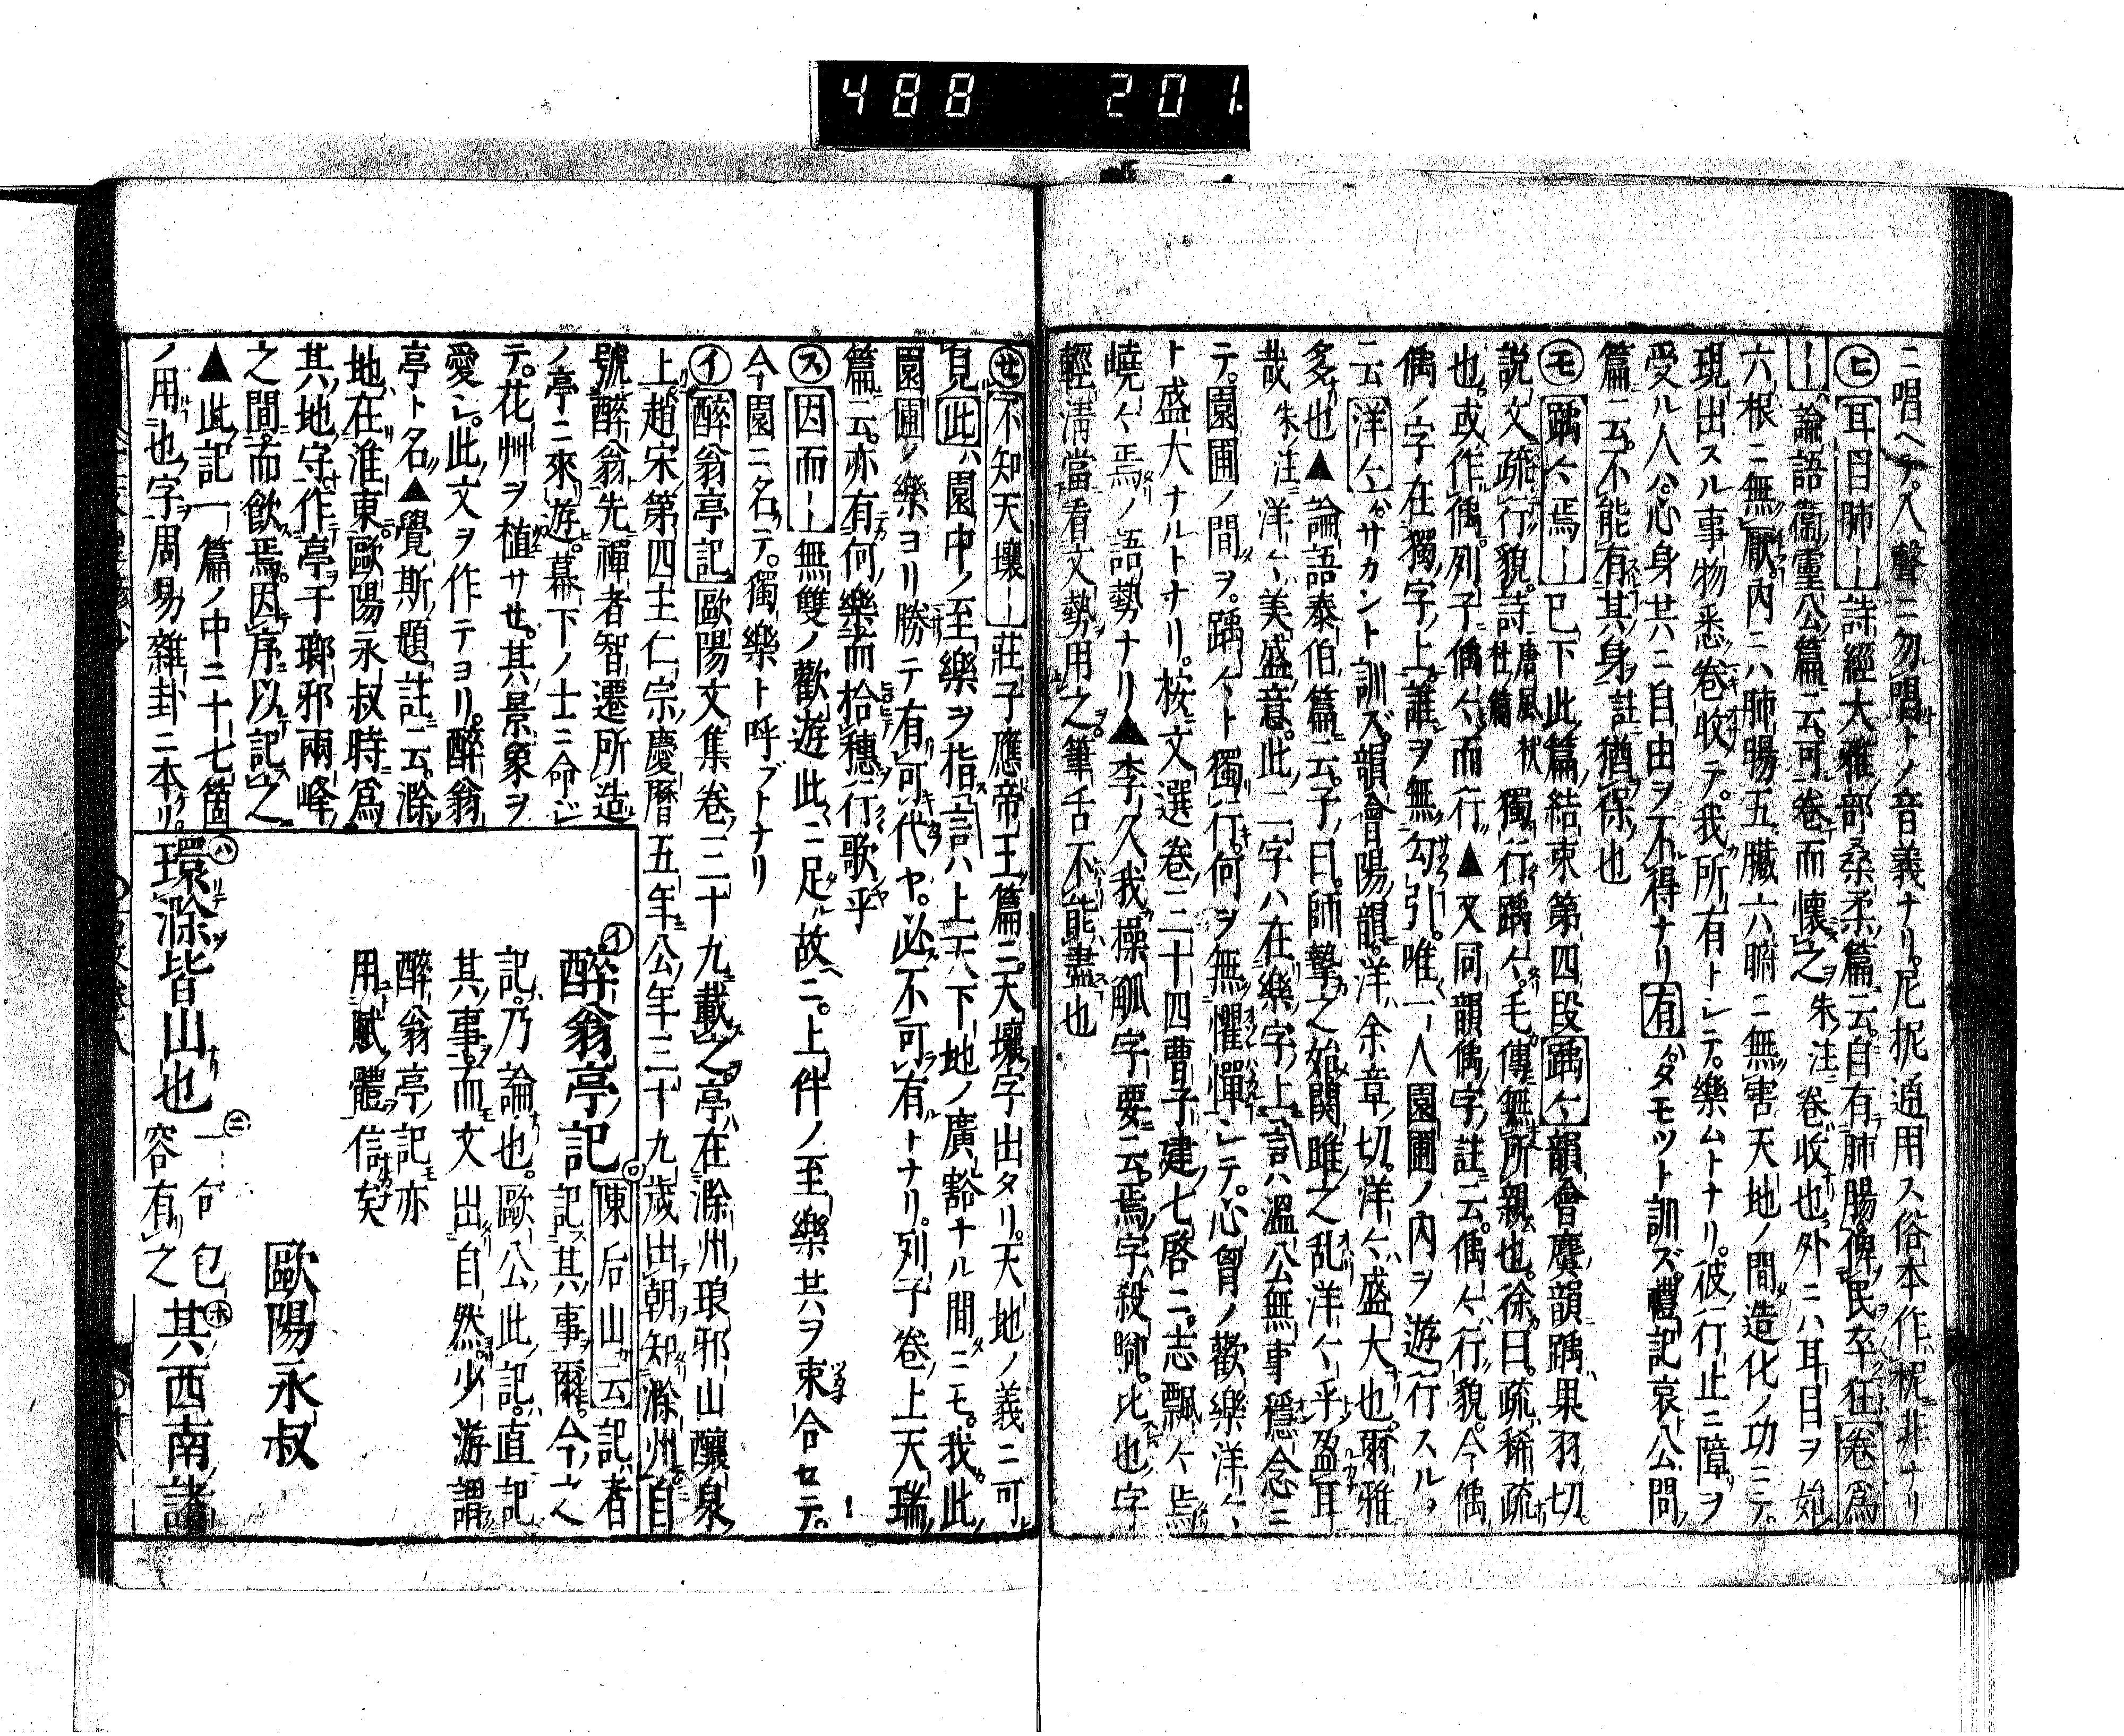 488 201.
ニ唱ヘテ。入聲ニ勿唱トノ音義ナリ。尼柅通用ス俗本作柷非ナリ
㋪耳目肺〡詩經大雅部桑柔篇云。自有肺腸俾民卒狂卷爲
〡論語衞靈公篇云。可卷而懷之朱注卷收也。外ニハ耳目ヲ始
六根ニ無厭。内ニハ肺腸五臟六腑ニ無害天地ノ間造化ノ功ニテ。
現出スル事物悉卷收テ。我所有トシテ。樂ムトナリ。彼行止ニ障ヲ
受ル人ハ。心身共ニ自由ヲ不得ナリ有ハタモツト訓ズ。禮記哀公問
篇云。不能有其身註猶保也
㋲踽々焉〡已下此篇結束第四段踽々韻會麌韻踽果羽切。
説文疏行貌。詩唐風杕杜篇獨行踽々。毛傳無所親也。徐曰。疏稀疏
也。或作偊。列子偊々而行▲又同韻偊字註云。偊々行貌。今偊
偊ノ字在獨字上。誰ヲ無勾引。唯一人園圃ノ内ヲ遊行スルヲ
云洋々ハサカント訓ズ。韻會陽韻。洋余章切。洋々盛大也。爾雅
多也▲論語泰伯篇云。子曰。師摯之始關雎之乱洋々乎盈耳
哉朱注洋々美盛意。此二字ハ在樂字上言ハ溫公無事穩念ニ
テ。園圃ノ間ヲ。踽々ト獨行。何ヲ無懼憚シテ。心胷ノ歡樂洋々
ト盛大ナルトナリ。桉文選卷三十四曹子建七啓ニ。志飄々焉
嶢々焉ノ語勢ナリ▲李久我操觚字要云。焉字殺瞓。比也字
輕淸當看文勢用之。筆舌不能盡也
㋝不知天壤〡莊子應帝王篇ニ。天壤字出タリ。天地ノ義ニ可
見此ハ園中ノ至樂ヲ指言ハ上天下地ノ廣豁ナル間ニモ。我此
園圃ノ樂ヨリ勝テ有可代ヤ。必不可有トナリ。列子卷上天瑞
篇云。亦有何樂而拾穗行歌乎
㋜因而〡無雙ノ歡遊此ニ足故ニ。上件ノ至樂共ヲ束合セテ。
今園ニ名テ。獨樂ト呼ブトナリ
㋑醉翁亭記歐陽文集卷三十九載之。亭在滁州琅邪山釀泉
上趙宋第四主仁宗慶曆五年公年三十九歲出朝知滁州自
號醉翁先禪者智遷所造
ノ亭ニ來遊。幕下ノ士ニ命ジ
テ。花艸ヲ植サセ。其景象ヲ
愛シ。此文ヲ作テヨリ。醉翁
亭ト名▲覺斯題註云。滁
地在淮東歐陽永叔時爲
其地守作亭于瑯邪兩峰
之間而飲焉。因序以記之
▲此記一篇ノ中ニ十七箇
ノ用也字周易雜卦ニ本リ。
㋑醉翁亭記㋺陳后山云記者
記其事爾。今之
記。乃論也。歐公此記。直記
其事。而文出自然少游謂
醉翁亭記亦
用賦體信矣
歐陽永叔
㋩環滁皆山也㋥一句包
容有之㋭其西南諸